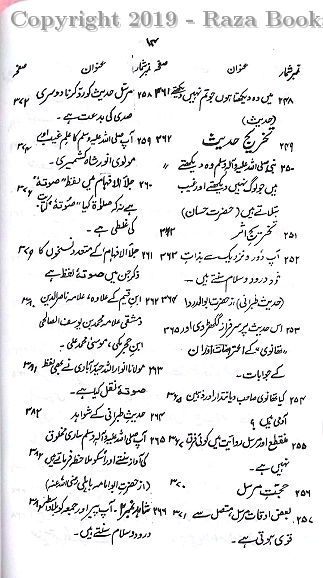 Copyright 2019 - Raza Book
۱۴
نمبر شمار عنوان صفحہ
۲۴۸ میں وہ دیکھتا ہوں جو تم نہیں دیکھتے ۳۶۱
(حدیث)
۲۴۹ تخریج حدیث ۳۶۲
۲۵۰ نبی صلی اللہ علیہ وآلہ وسلم وہ دیکھتے
ہیں جو لوگ نہیں دیکھتے اور غیب
بتلاتے ہیں (حضرت حسان)
۲۵۱ تخریج اثر ۳۶۳
۲۵۲ آپ دور و نزدیک سے بذات ۳۶۳
خود درود و سلام سنتے ہیں۔
(حدیث طبرانی) از حضرت ابو الدرداء
۲۵۳ اس حدیث پر سرفراز گکھڑوی اور ۳۶۵
تھانوی کے اعتراضات اور ان
کے جوابات۔
۲۵۴ کیا تھانوی صاحب دیانتدار اور ذہین ۳۶۵
آدمی ہیں ؟
۲۵۵ منقطع اور مرسل روایت میں کوئی فرق
نہیں ہے۔
۲۵۶ حجیت مرسل ۳۷۰
۲۵۷ بعض اوقات مرسل، متصل سے ۳۷۱
قوی ہوتی ہے۔
نمبر شمار عنوان صفحہ
۲۵۸ مرسل حدیث کو رد کرنا دوسری ۳۷۲
صدی کی بدعت ہے۔
۲۵۹ آپ صلی اللہ علیہ وسلم کا علم غیب اور
مولوی انور شاہ کشمیری۔
۲۶۰ جلاء الافہام میں لفظ "صوتہ"
ہے نہ کہ صلوٰتہ کیا "صوتہ" کتابت
کی غلطی ہے۔
۲۶۱ جلاء الافہام کے متعدد نسخوں کا
ذکر جن میں صوتہ لفظ ہے
۲۶۲ ابن قیم کے علاوہ، علامہ ناصر الدین
دمشقی علامہ محمد بن یوسف الصالحی
ابن حجر مکی، موسیٰ محمد علی۔
مولانا انوار اللہ حیدرآبادی نے بھی لفظ
صوتہ نقل کیا ہے۔
حدیث طبرانی کے شواہد ۳۸۲
۲۶۵ آپ صلی اللہ علیہ وآلہ وسلم ساری مخلوق
کی آواز سنتے اور انکو ملاحظہ فرماتے ہیں
(از حضرت ابو امامہ باہلی رضی اللہ عنہ)
۲۶۶ شاہد نمبر ۲۔ آپ پیر اور جمعہ کو
درود و سلام سنتے ہیں۔